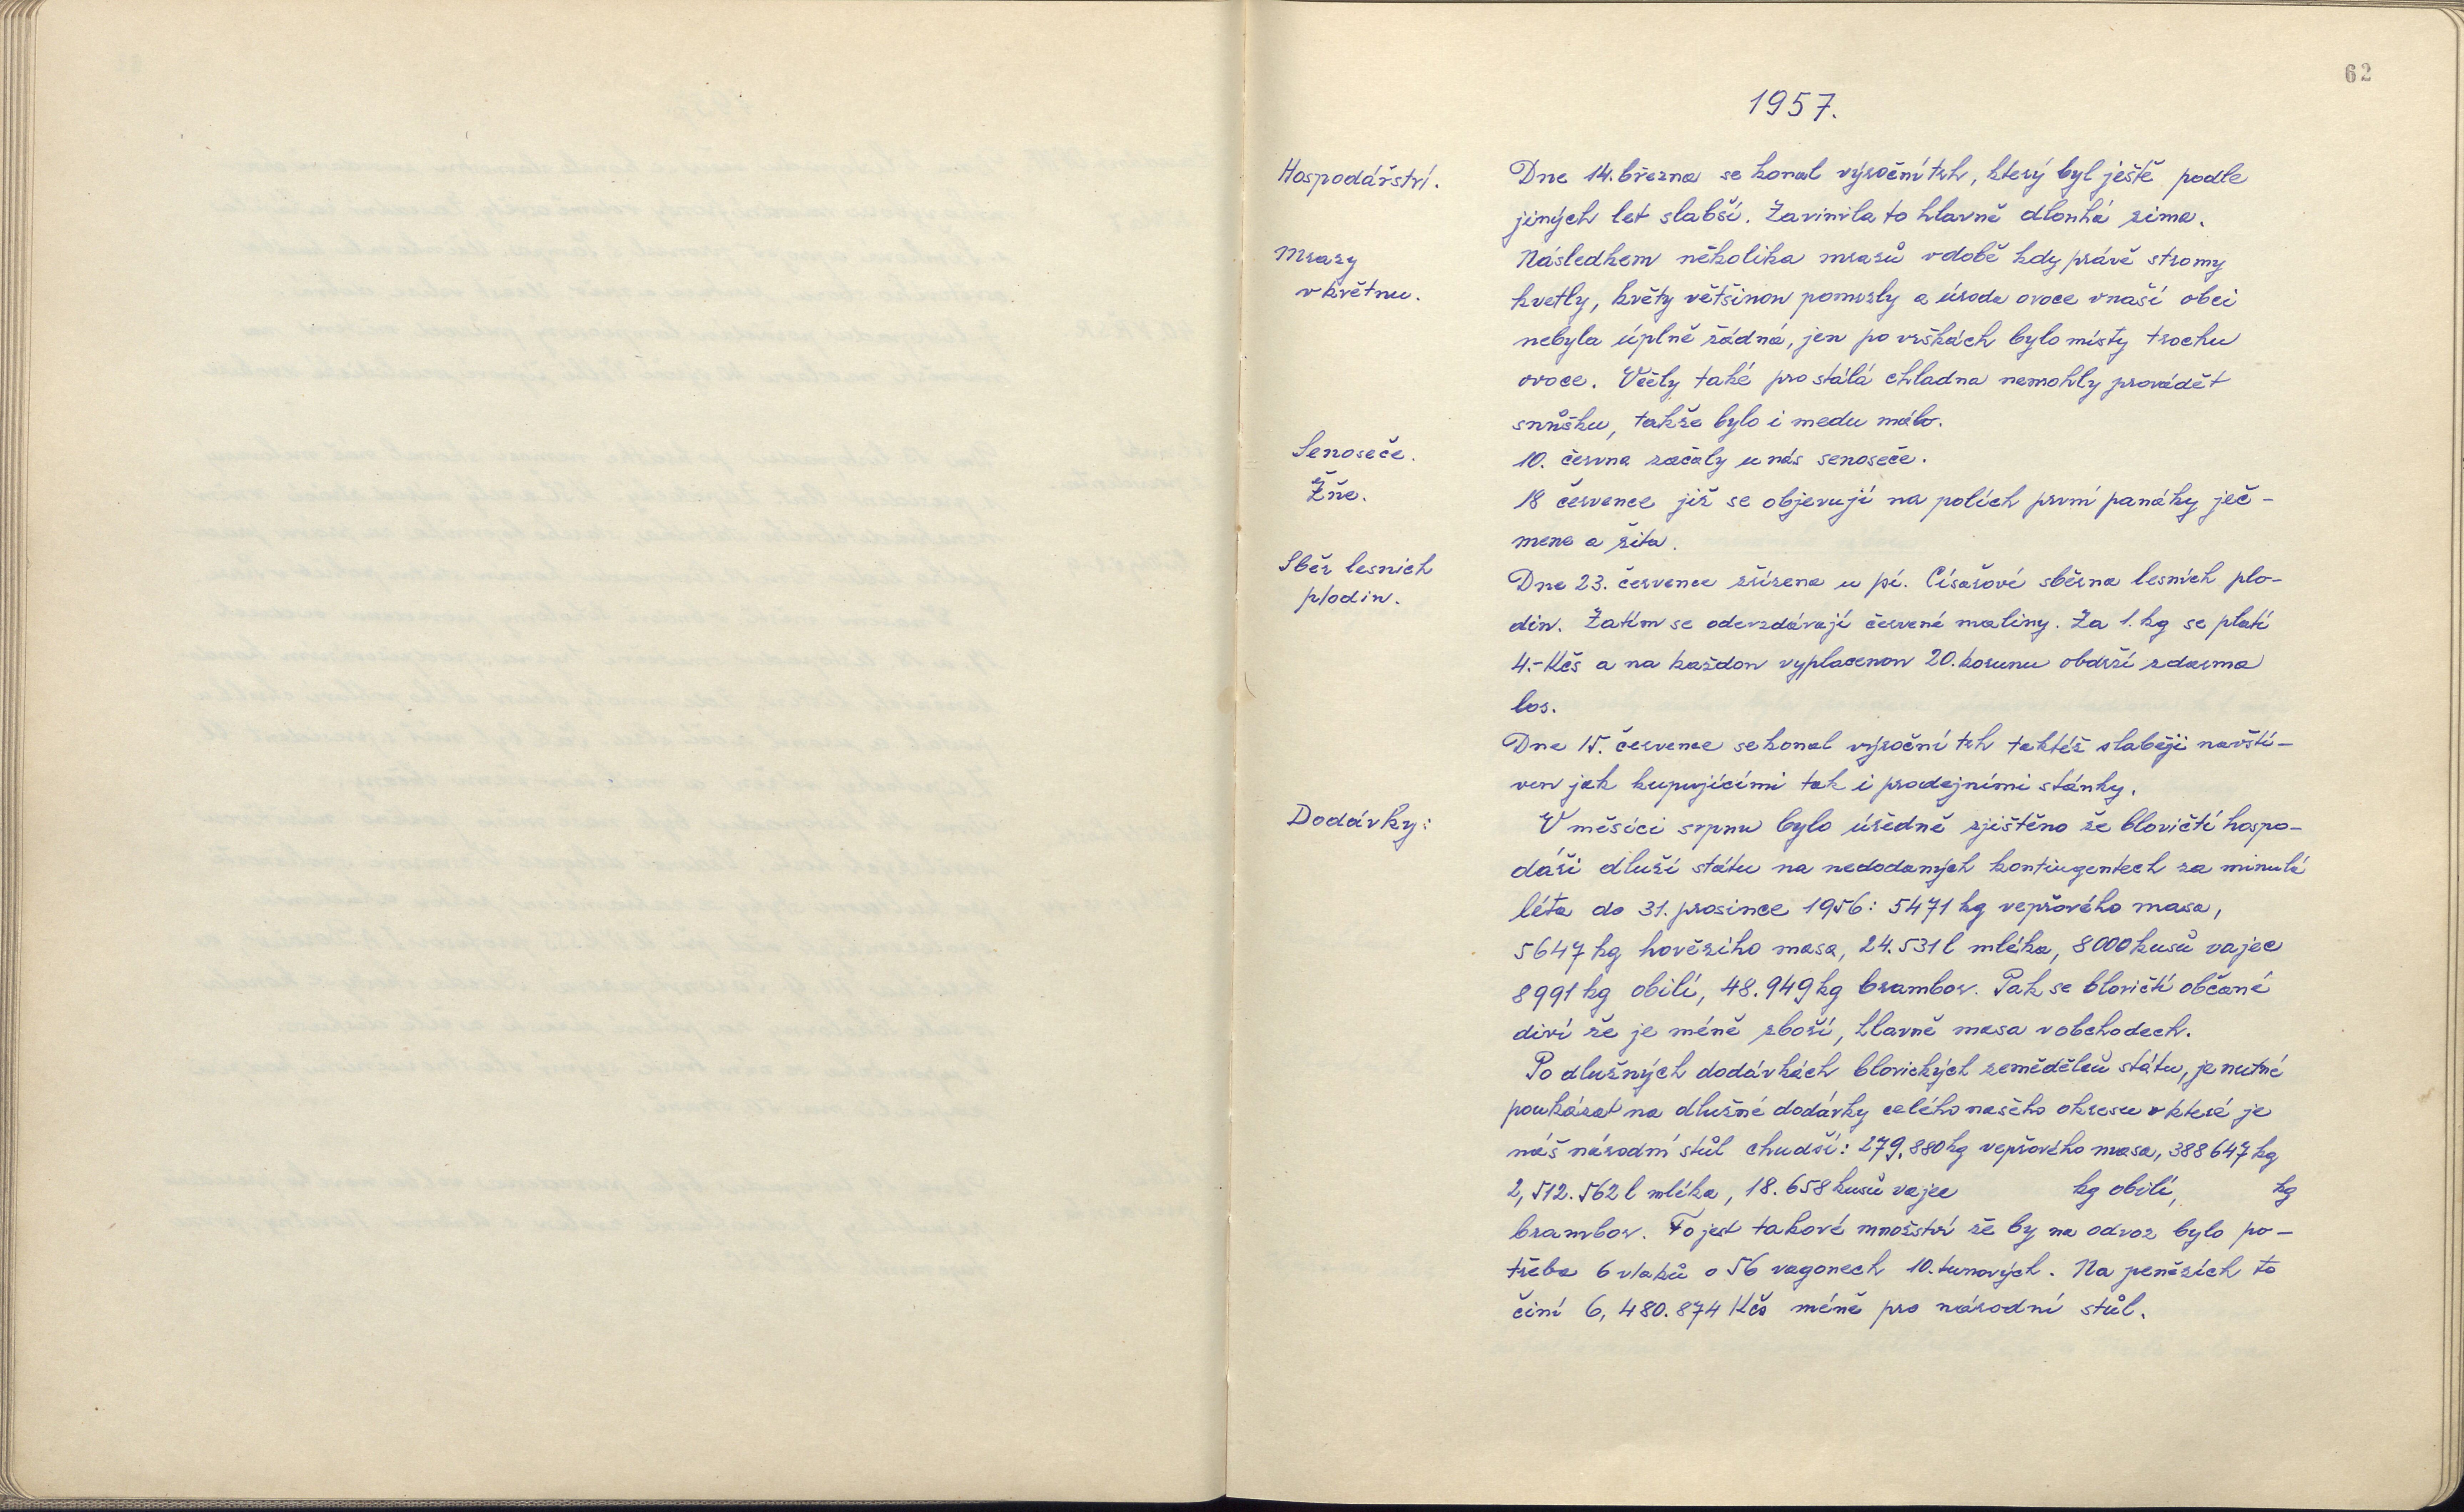 62
1957.
Hospodářství.
Dne 14. března se konal výroční trh, který byl ještě podle
jiných let slabší. Zavinila to hlavně dlouhá zima.
Mrazy
v květnu.
Následkem několika mrazů v době kdy právě stromy
kvetly, květy většinou pomrzly a úroda ovoce v naší obci
nebyla úplně žádná, jen po vrškách bylo místy trochu
ovoce. Včely také pro stálá chladna nemohly provádět
snůšku, takže bylo i medu málo.
Senoseče.
10. června začaly u nás senoseče.
Žně.
18 července již se objevují na polích první panáky ječ-
mene a žita.
Sběr lesních
plodin.
Dne 23. července zřízena u pí. Císařové sběrna lesních plo-
din. Zatím se odevzdávají červené maliny. Za 1. kg se platí
4.- Kčs a na každou vyplacenou 20. korunu obdrží zdarma
los.
Dne 15. července se konal výroční trh taktéž slaběji navští-
ven jak kupujícími tak i prodejními stánky.
Dodávky:
V měsíci srpnu bylo úředně zjištěno že blovičtí hospo-
dáři dluží státu na nedodaných kontingentech za minulá
léta do 31. prosince 1956: 5471 kg vepřového masa,
5647 kg hovězího masa, 24.531 l mléka, 8000 kusů vajec
8991 kg obilí, 48.949 kg brambor. Pak se blovičtí občané
diví že je méně zboží, hlavně masa v obchodech.
Po dlužných dodávkách blovických zemědělců státu, je nutné
poukázat na dlužné dodávky celého našeho okresu o které je
náš národní stůl chudší: 279.880 kg vepřového masa, 388647 kg
2,512.562 l mléka, 18.658 kusů vajec kg obilí, kg
brambor. To jest takové množství že by na odvoz bylo po-
třeba 6 vlaků o 56 vagonech 10. tunových. Na penězích to
činí 6,480.874 Kčs méně pro národní stůl.